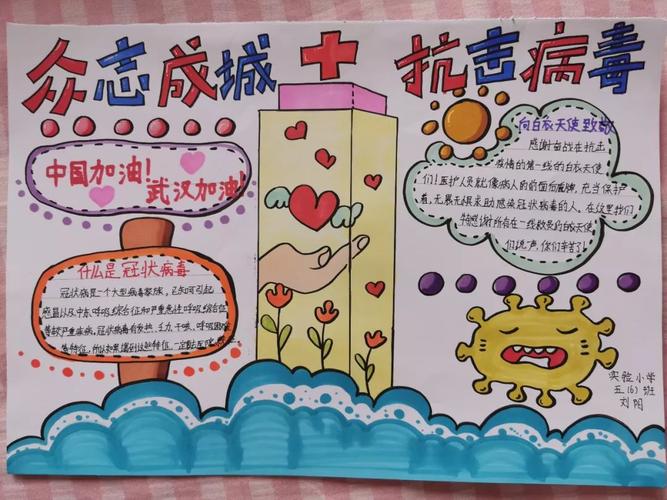 众志成城 抗击病毒
中国加油!
武汉加油!
什么是冠状病毒
冠状病是一个大型病毒家族,已知可引起
感冒以及中东呼吸综合征和严重急性呼吸综合征
等较严重疾病。冠状病毒有发热、乏力、干咳、呼吸困难
等特征,所以如果遇到这些特征,一定
向白衣天使致敬
感谢奋战在抗击
疫情的第一线的白衣天使
们!医护人员就像病人的前面盾牌,充当保护
着,无畏无惧求助感染冠状病毒的人。在这里我们
特感谢所有在一线救灾的白衣天使
们说声,你们辛苦了!
实验小学
五(6)班
刘阳